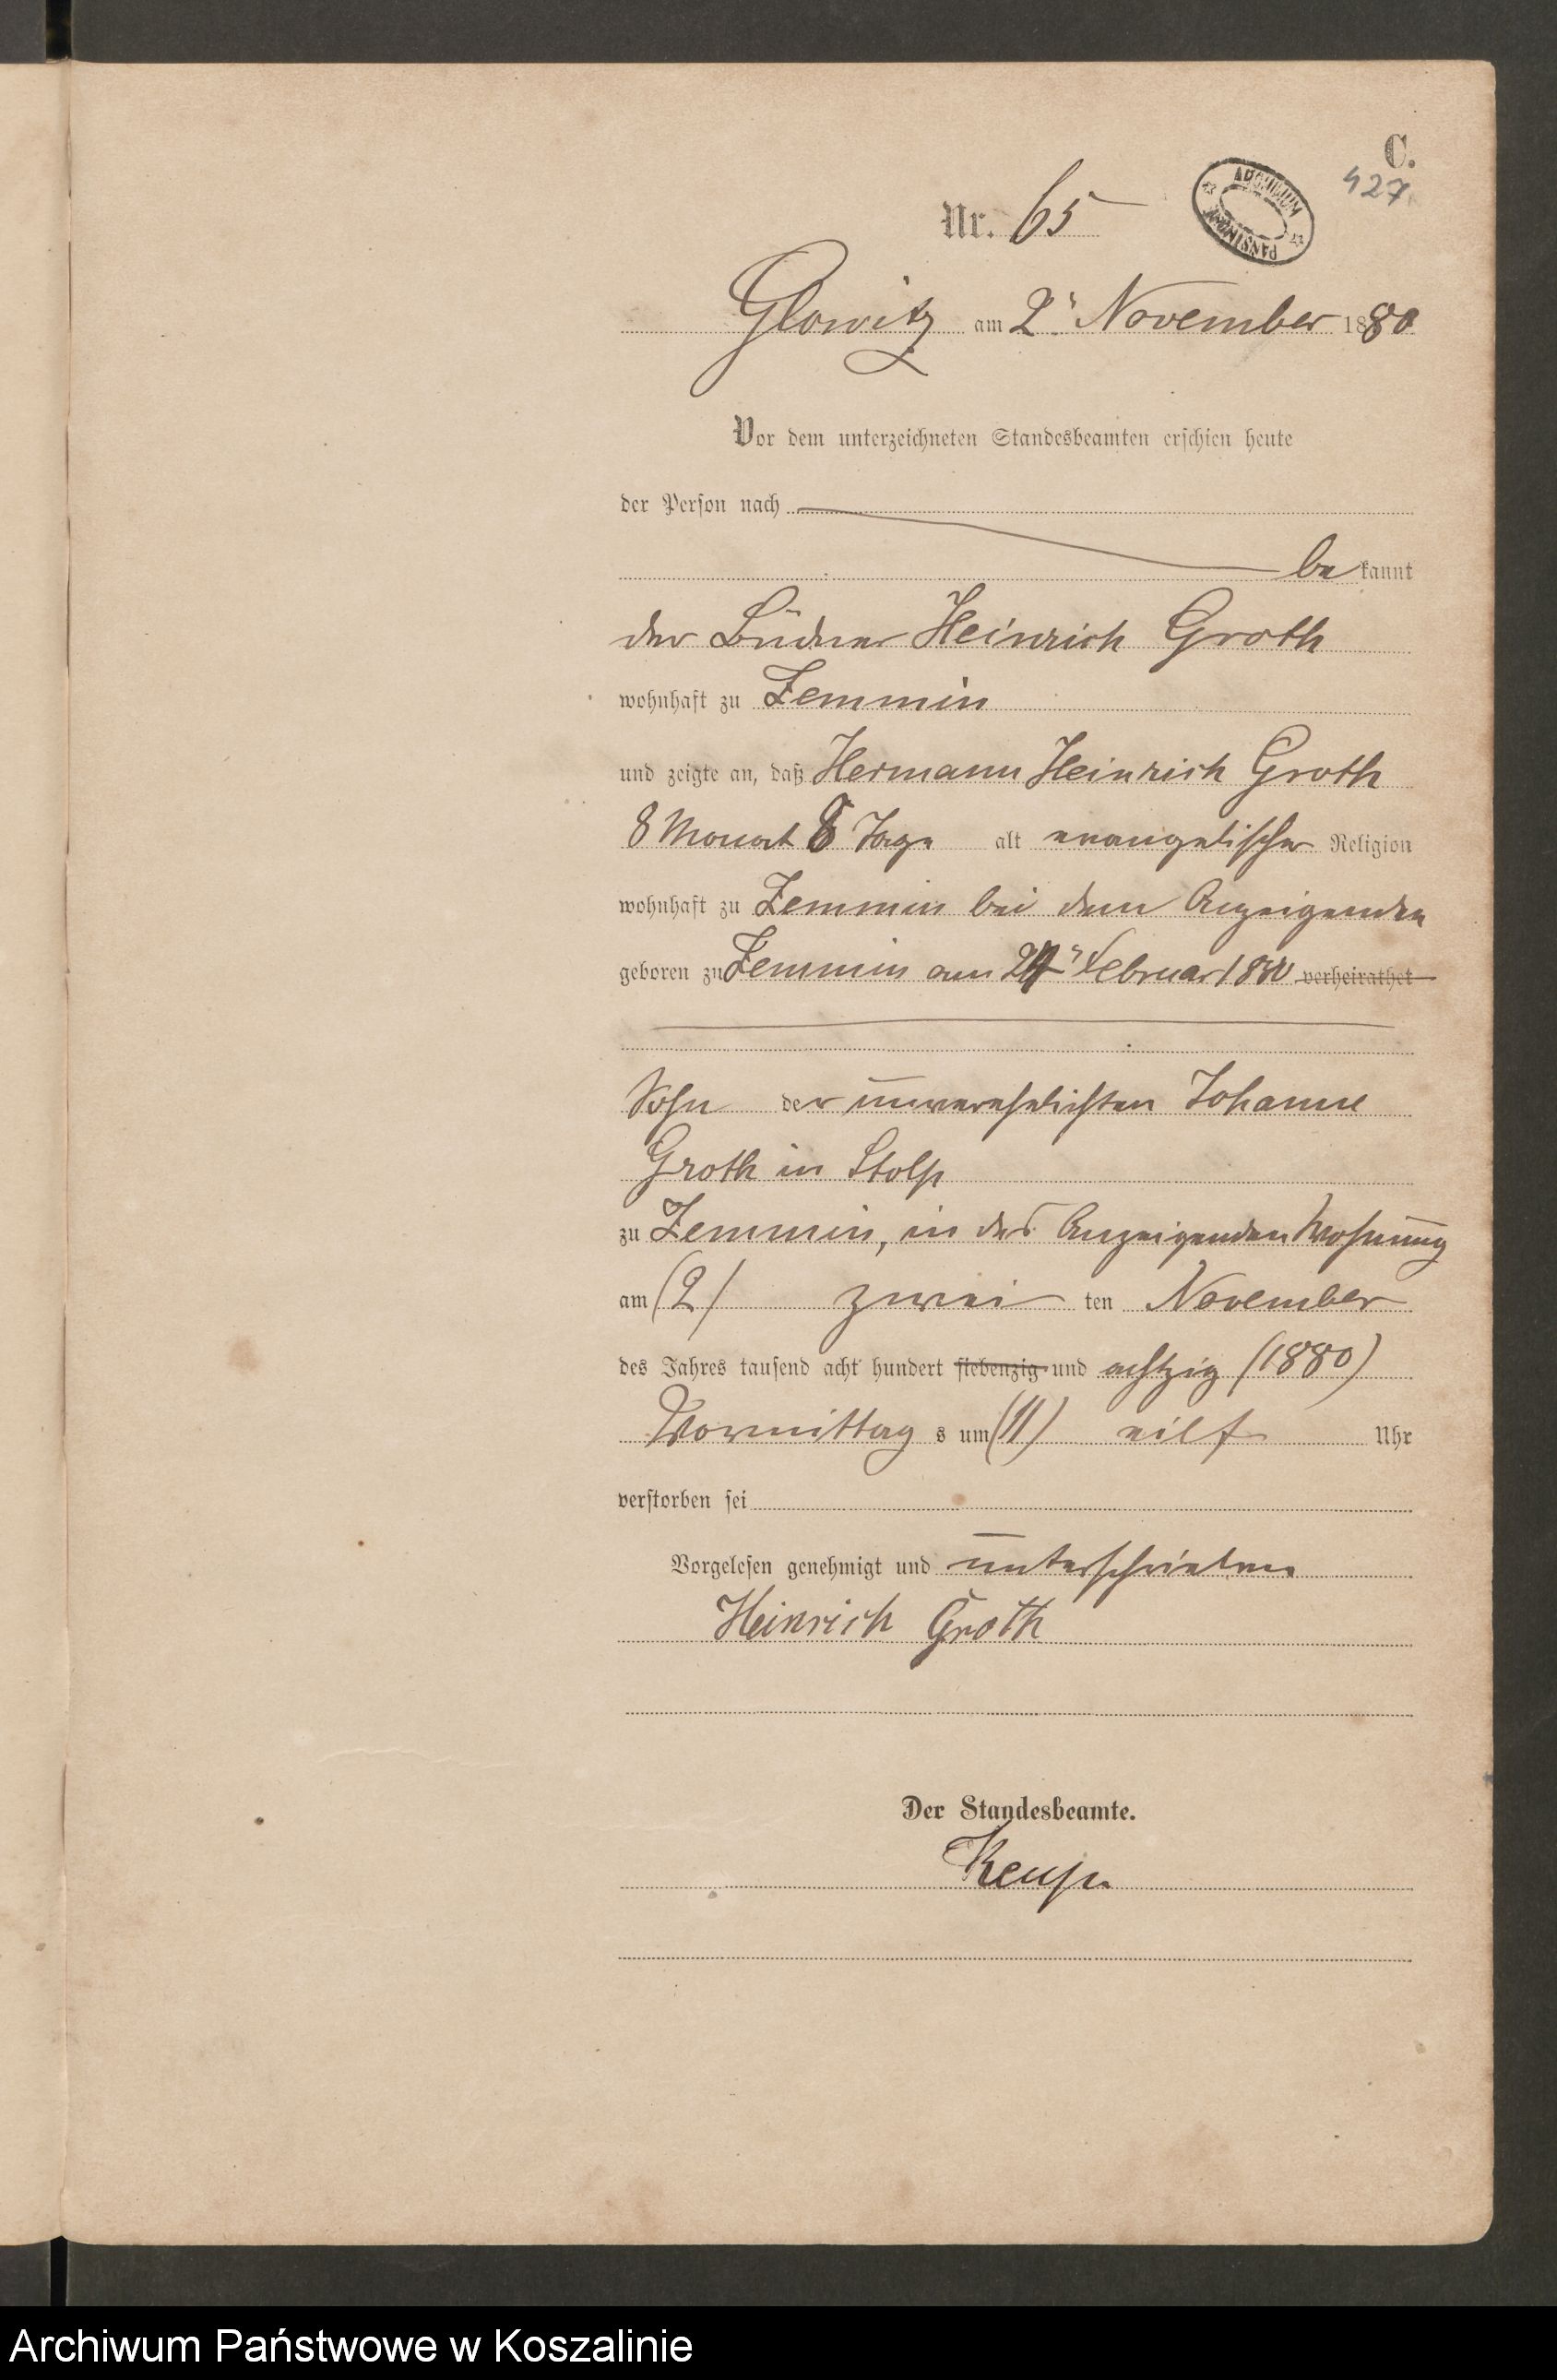 C.
427
ARCHIWUM PAŃSTWOWE
Nr. 65
Glowitz am 2ⁿ November 1880
Vor dem unterzeichneten Standesbeamten erschien heute
der Person nach
bekannt
der Büdner Heinrich Groth
wohnhaft zu Zemmin
und zeigte an, daß Hermann Heinrich Groth
8 Monat 8 Tage alt evangelischer Religion
wohnhaft zu Zemmin bei dem Anzeigenden
geboren zu Zemmin am Februar 1880 verheirathet
Sohn der unverehelichten Johanne
Groth in Stolp
zu Zemmin, in des Anzeigenden Wohnung
am (2) zwei ten November
des Jahres tausend acht hundert siebenzig und achtzig (1880)
Vormittags um (11) eilf Uhr
verstorben sei
Vorgelesen genehmigt und unterschrieben
Heinrich Groth
Der Standesbeamte.
Archiwum Państwowe w Koszalinie